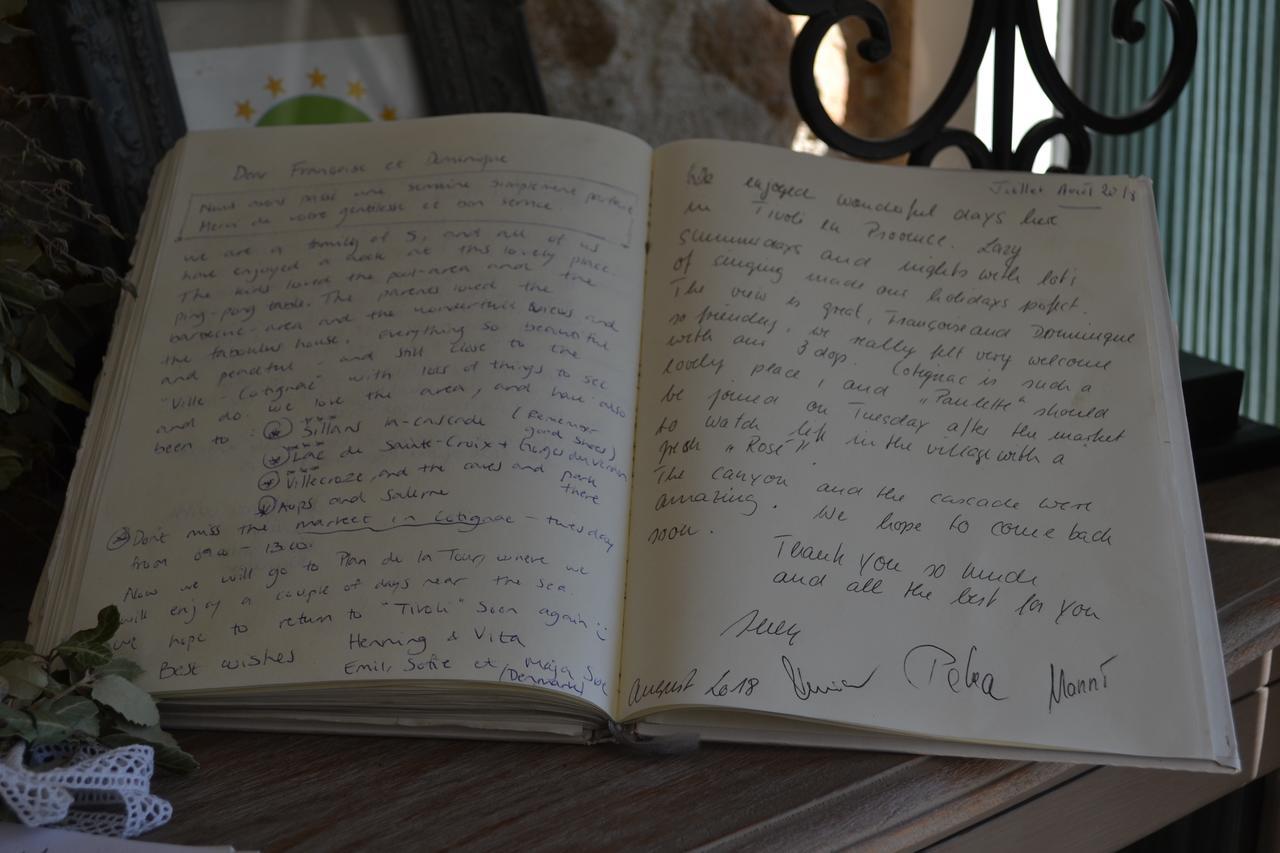 Dear Françoise et Dominique
Nous avons passé une semaine simplement parfaite
Merci de votre gentillesse et bon service.
we are a family of 5, and all of us
have enjoyed a week at this lovely place.
The kids loved the pool-area and the
ping-pong table. The parents loved the
barbecue-area and the wonderfull views and
the fabulous house. everything so beautiful
and peaceful - and still close to the
"Ville - Cotignac" with lots of things to see
and do. we love the area, and have also
been to: Sillans la-cascade (Remember good shoes)
Lac de Sainte-Croix + Gorges du Verdon
Villecroze, and the caves and park there
Aups and Salerne
Don't miss the market in Cotignac - tuesday
from 09.00 - 13.00.
Now we will go to Plan de la Tour, where we
will enjoy a couple of days near the sea.
we hope to return to "Tivoli" soon again :)
Best wishes Henning & Vita
Emil, Sofie et Maja Sue
(Denmark)
Juillet Août 2018
We enjoyed wonderful days here
in Tivoli en Provence. Lazy
summerdays and nights with lots
of singing made our holidays pefect.
The view is great, Françoise and Dominique
so friendly, we really felt very welcome
with our 3 dogs. Cotignac is such a
lovely place, and "Paulette" should
be joined on Tuesday after the market
to watch life in the village with a
fresh "Rosé".
The canyon and the cascade were
amazing. We hope to come back
soon.
Thank you so much
and all the best for you
August 2018 Petra Manni